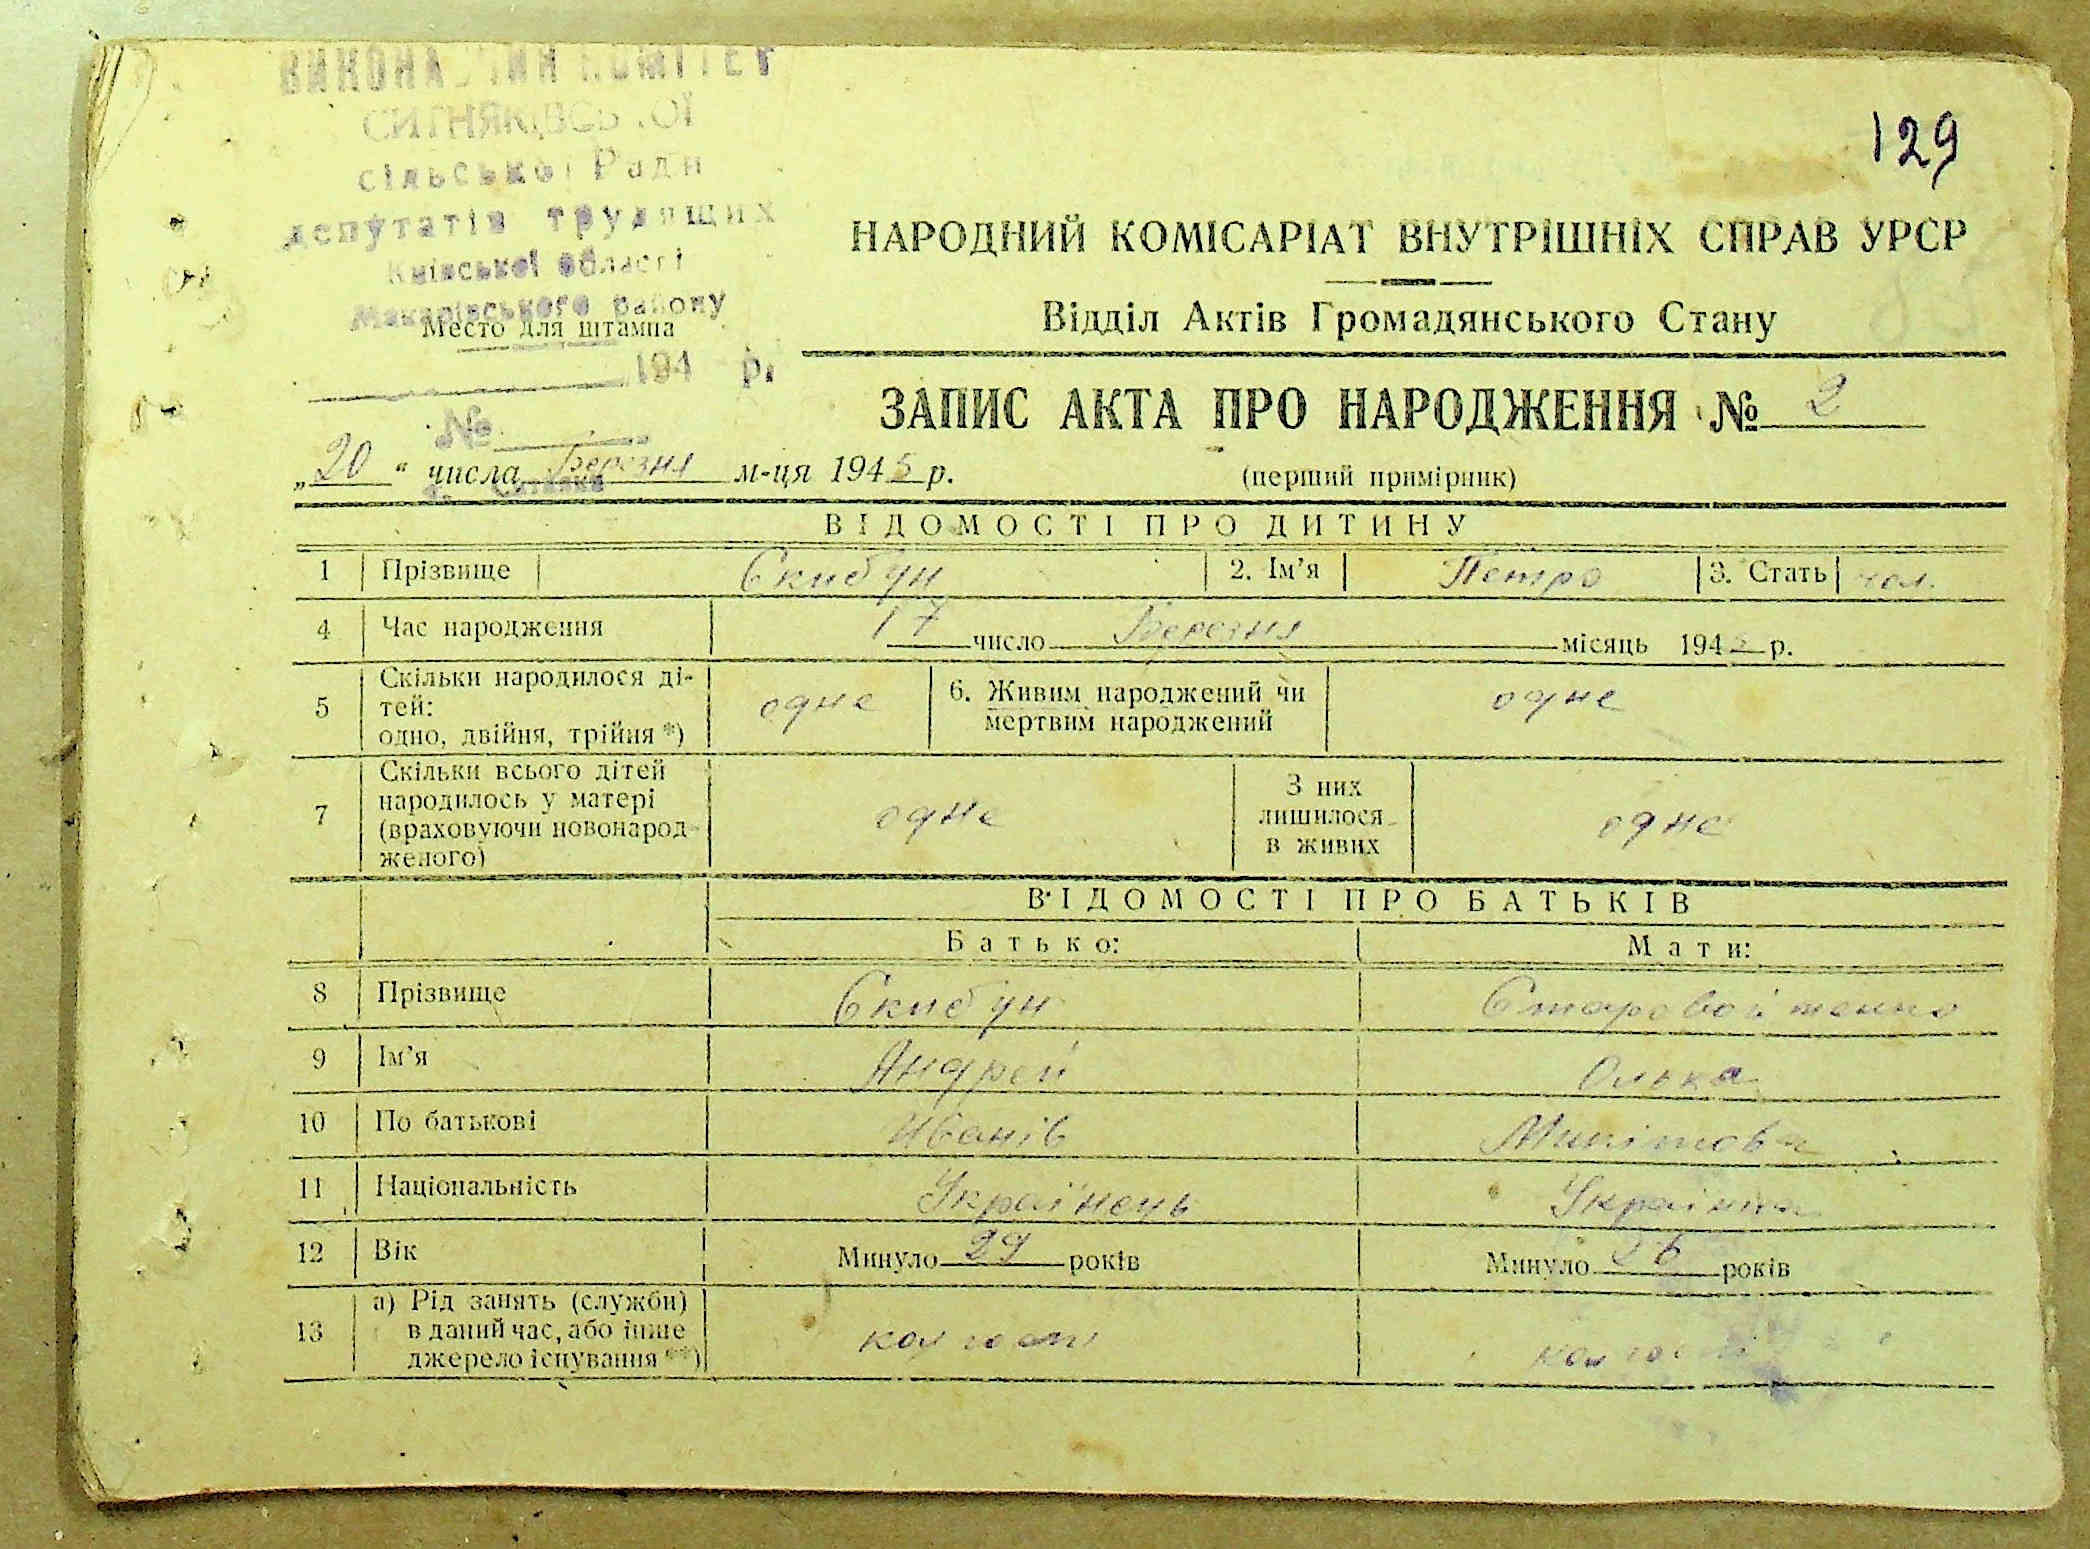 ВИКОНАВЧИЙ КОМІТЕТ
СИТНЯКІВСЬКОЇ
сільської Ради
депутатів трудящих
Київської області
Макарівського району
Место для штампа
194 р.
№
129
НАРОДНИЙ КОМІСАРІАТ ВНУТРІШНІХ СПРАВ УРСР
Відділ Актів Громадянського Стану
ЗАПИС АКТА ПРО НАРОДЖЕННЯ № 2
„20“ числа Березня м-ця 1945 р.
(перший примірник)
ВІДОМОСТІ ПРО ДИТИНУ
1 Прізвище Скибун 2. Ім’я Петро 3. Стать чол.
4 Час народження 17 число Березня місяць 1945 р.
5 Скільки народилося ді-
тей:
одно, двійня, трійня *) одне
6. Живим народжений чи
мертвим народжений одне
7 Скільки всього дітей
народилось у матері
(враховуючи новонарод-
женого) одне
З них
лишилося
в живих одне
ВІДОМОСТІ ПРО БАТЬКІВ
Батько: Мати:
8 Прізвище Скибун Старовойтенко
9 Ім’я Андрей Олька
10 По батькові Иванів
11 Національність Українець Українка
12 Вік Минуло 29 років Минуло років
13 а) Рід занять (служби)
в даний час, або інше
джерело існування **)